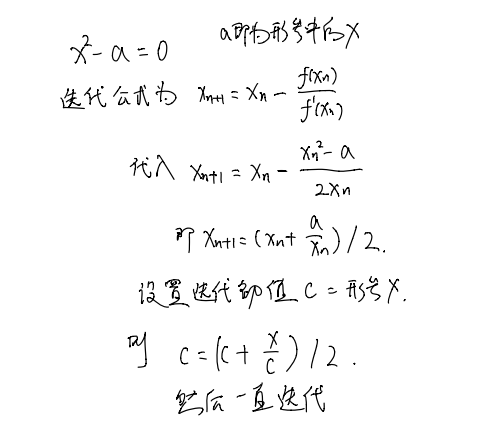 x²-a=0 a即为形参中的x
迭代公式为 xₙ₊₁=xₙ-f(xₙ)/f'(xₙ)
代入 xₙ₊₁=xₙ-(xₙ²-a)/2xₙ
即 xₙ₊₁=(xₙ+a/xₙ)/2.
设置迭代初值 c=形参x.
则 c=(c+x/c)/2.
然后一直迭代